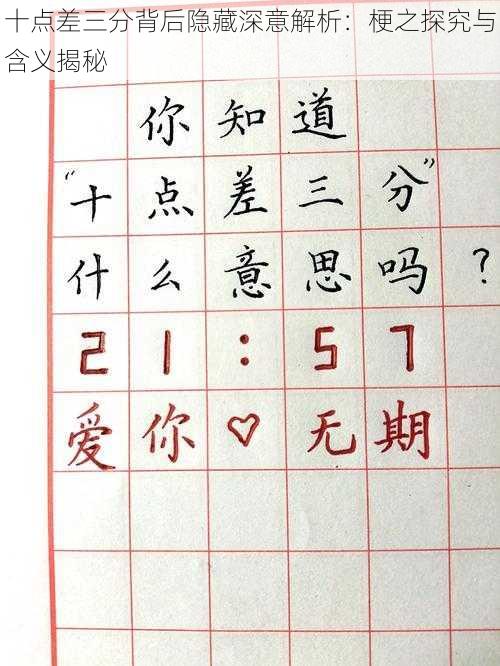 十点差三分背后隐藏深意解析：梗之探究与
含义揭秘
你知道
“十点差三分”
什么意思吗？
21:57
爱你♡无期